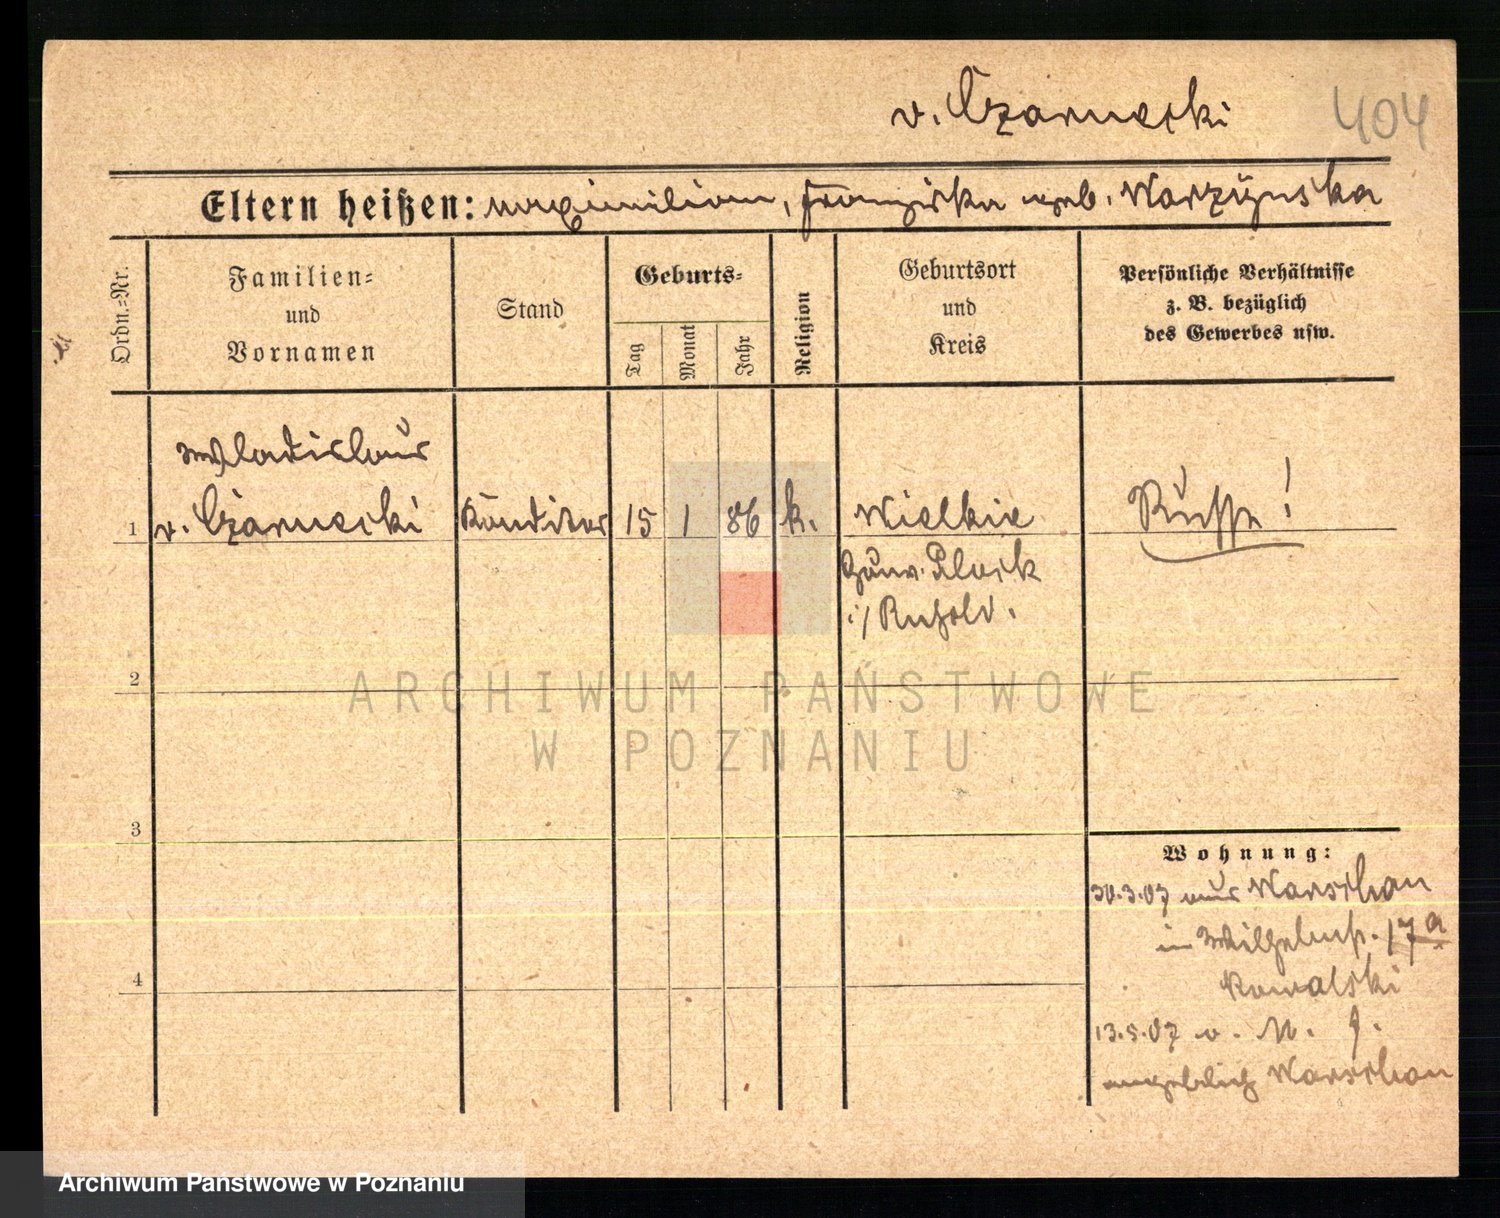 v. Czarnecki
404
Eltern heißen: Maximilian, Franziska geb. Warzynska
Ordn.-Nr.
Familien- und Vornamen
Stand
Geburts-
Tag
Monat
Jahr
Religion
Geburtsort und Kreis
Persönliche Verhältnisse
z. B. bezüglich
des Gewerbes usw.
Wladislaus
1 v. Czarnecki Konditor 15 1 86 k. Wielkie Russe!
Gouv. Plock
i/ Rußld.
2
3
4
Wohnung:
30.3.07 aus Warschau
in Wilhelmstr. 17a
Kowalski
13.5.07 v. M. J.
angeblich Warschau
ARCHIWUM PAŃSTWOWE
W POZNANIU
Archiwum Państwowe w Poznaniu